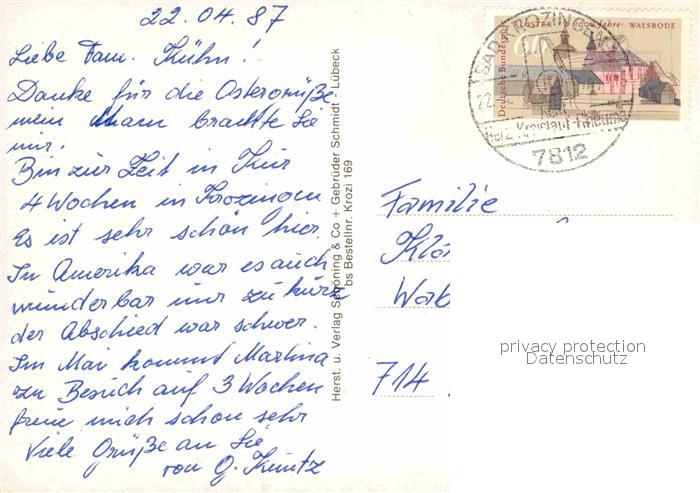 22.04.87
Liebe Fam. Kühn!
Danke für die Ostergrüße
mein Mann brachte Sie
mir.
Bin zur Zeit in Kur
4 Wochen in Krozingen
Es ist sehr schön hier.
In Amerika war es auch
wunderbar nur zu kurz
der Abschied war schwer.
Im Mai kommt Martina
zu Besuch auf 3 Wochen
freue mich schon sehr
Viele Grüße an Sie
von G. Kuntz
Herst. u. Verlag Schöning & Co + Gebrüder Schmidt - Lübeck
bs Bestellnr. Krozi 169
Deutsche Bundespost
KLOSTER 1000 Jahre WALSRODE
BAD KROZINGEN
22.
Herz Kreislauf Rheuma
7812
Familie
Klö
Wob
714
privacy protection
Datenschutz